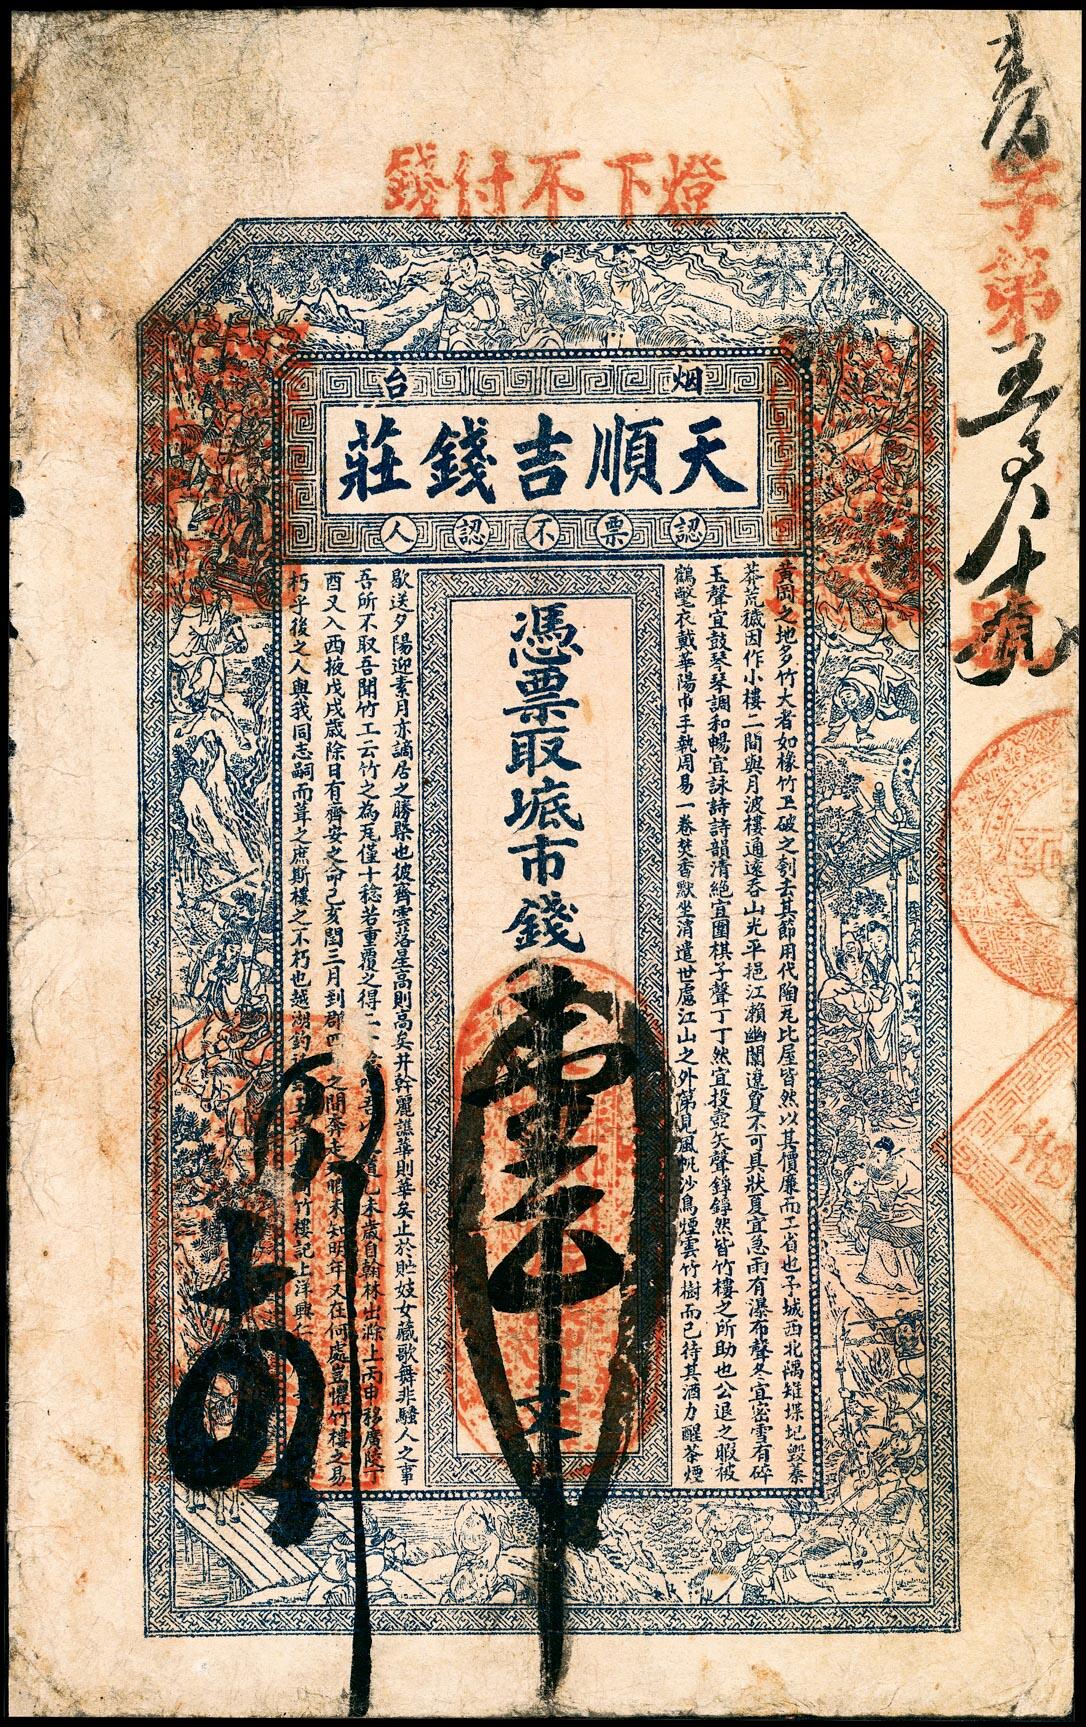 燈下不付錢
子第
號
烟台
天順吉錢莊
認票不認人
憑票取㡳市錢
壹千文
黃岡之地多竹大者如椽竹工破之刳去其節用代陶瓦比屋皆然以其價廉而工省也予城西北隅雉堞圮毀蓁
莽荒穢因作小樓二間與月波樓通遠吞山光平挹江瀨幽闃遼夐不可具狀夏宜急雨有瀑布聲冬宜密雪有碎
玉聲宜鼓琴琴調和暢宜詠詩詩韻清絕宜圍棋子聲丁丁然宜投壺矢聲錚錚然皆竹樓之所助也公退之暇被
鶴氅衣戴華陽巾手執周易一卷焚香默坐消遣世慮江山之外第見風帆沙鳥煙雲竹樹而已待其酒力醒茶煙
歇送夕陽迎素月亦謫居之勝槩也彼齊雲落星高則高矣井幹麗譙華則華矣止於貯妓女藏歌舞非騷人之事
吾所不取吾聞竹工云竹之為瓦僅十稔若重覆之得二 未歲自翰林出滁上丙申移廣陵丁
酉又入西掖戊戌歲除日有齊安之命己亥閏三月到郡四 之間奔走不暇未知明年又在何處豈懼竹樓之易
朽乎後之人與我同志嗣而葺之庶斯樓之不朽也 竹樓記上洋興仁